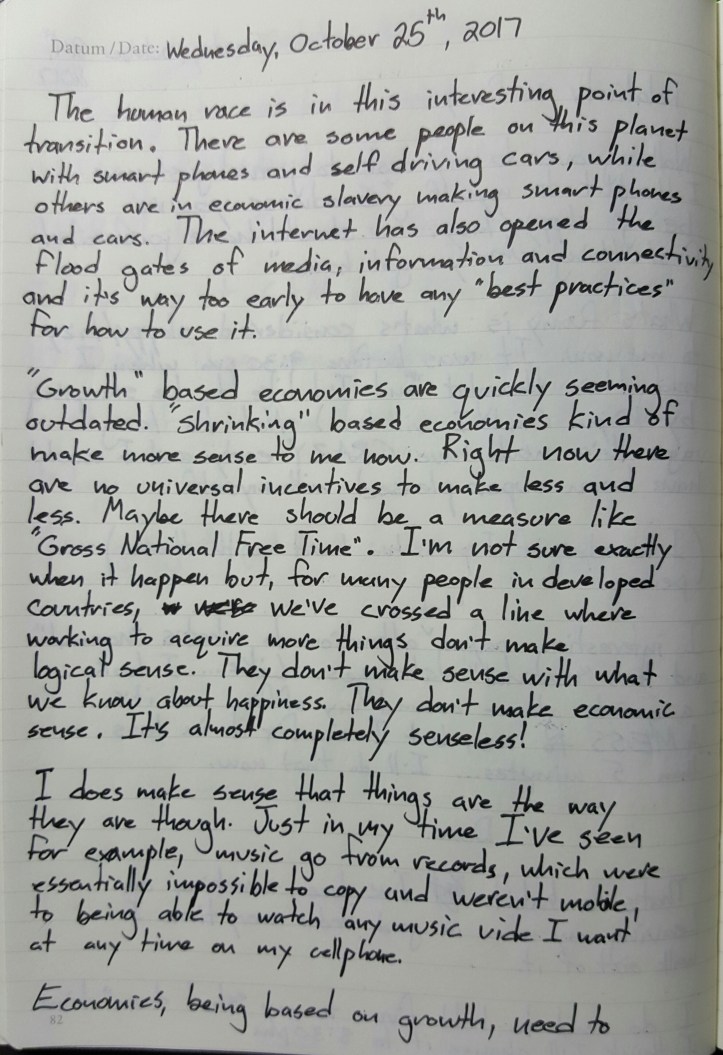 Datum / Date: Wednesday, October 25th, 2017
The human race is in this interesting point of
transition. There are some people on this planet
with smart phones and self driving cars, while
others are in economic slavery making smart phones
and cars. The internet has also opened the
flood gates of media, information and connectivity
and it's way too early to have any "best practices"
for how to use it.
"Growth" based economies are quickly seeming
outdated. "Shrinking" based economies kind of
make more sense to me now. Right now there
are no universal incentives to make less and
less. Maybe there should be a measure like
"Gross National Free Time". I'm not sure exactly
when it happen but, for many people in developed
countries, we've crossed a line where
working to acquire more things don't make
logical sense. They don't make sense with what
we know about happiness. They don't make economic
sense. It's almost completely senseless!
I does make sense that things are the way
they are though. Just in my time I've seen
for example, music go from records, which were
essentially impossible to copy and weren't mobile,
to being able to watch any music vide I want
at any time on my cellphone.
Economies, being based on growth, need to
82